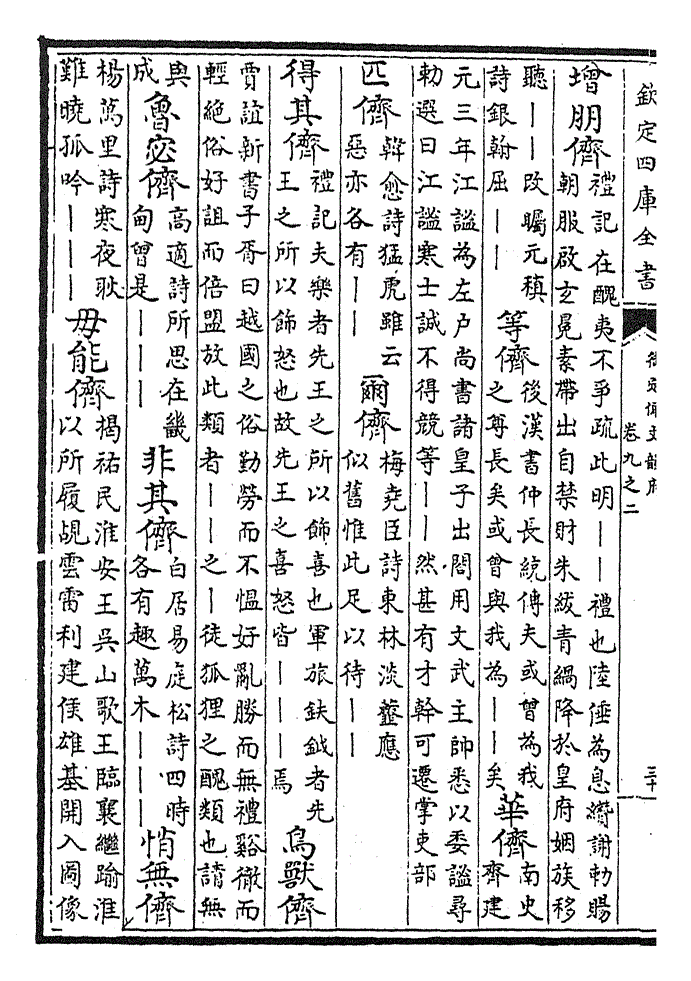 欽定四庫全書
御定佩文韻府
卷九之二
三十
增朋儕
禮記在醜夷不爭疏此明——禮也陸倕為息纘謝勅賜
朝服啟玄冕素帶出自禁財朱紱青緺降於皇府姻族移
聽——改矚元稹
詩銀翰屈——
等儕
後漢書仲長統傳夫或曾為我
之尊長矣或曾與我為——矣
華儕
南史
齊建
元三年江謐為左户尚書諸皇子出閤用文武主帥悉以委謐尋
勅選曰江謐寒士誠不得競等——然甚有才幹可遷掌吏部
匹儕
韓愈詩猛虎雖云
惡亦各有——
爾儕
梅堯臣詩東林淡虀應
似舊惟此足以待——
得其儕
禮記夫樂者先王之所以飾喜也軍旅鈇鉞者先
王之所以飾怒也故先王之喜怒皆———焉
鳥獸儕
賈誼新書子胥曰越國之俗勤勞而不愠好亂勝而無禮谿徼而
輕絕俗好詛而倍盟放此類者——之—徒狐狸之醜類也請無
與
成
魯宓儕
高適詩所思在畿
甸曾是———
非其儕
白居易庭松詩四時
各有趣萬木———
悄無儕
楊萬里詩寒夜耿
難曉孤吟———
毋能儕
揭祐民淮安王吳山歌王臨襄繼踰淮
以所履覘雲雷利建侯雄基開入圖像